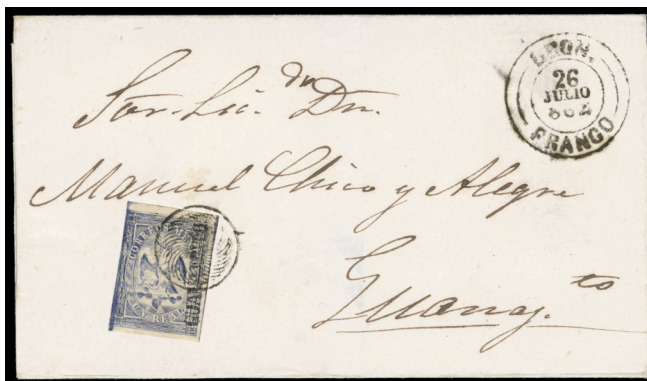 LEON.
26
JULIO
864
FRANCO
Sor. Lic. Dn.
Manuel Chico y Alegre
Guanaj.to
CORREOS
UN REAL